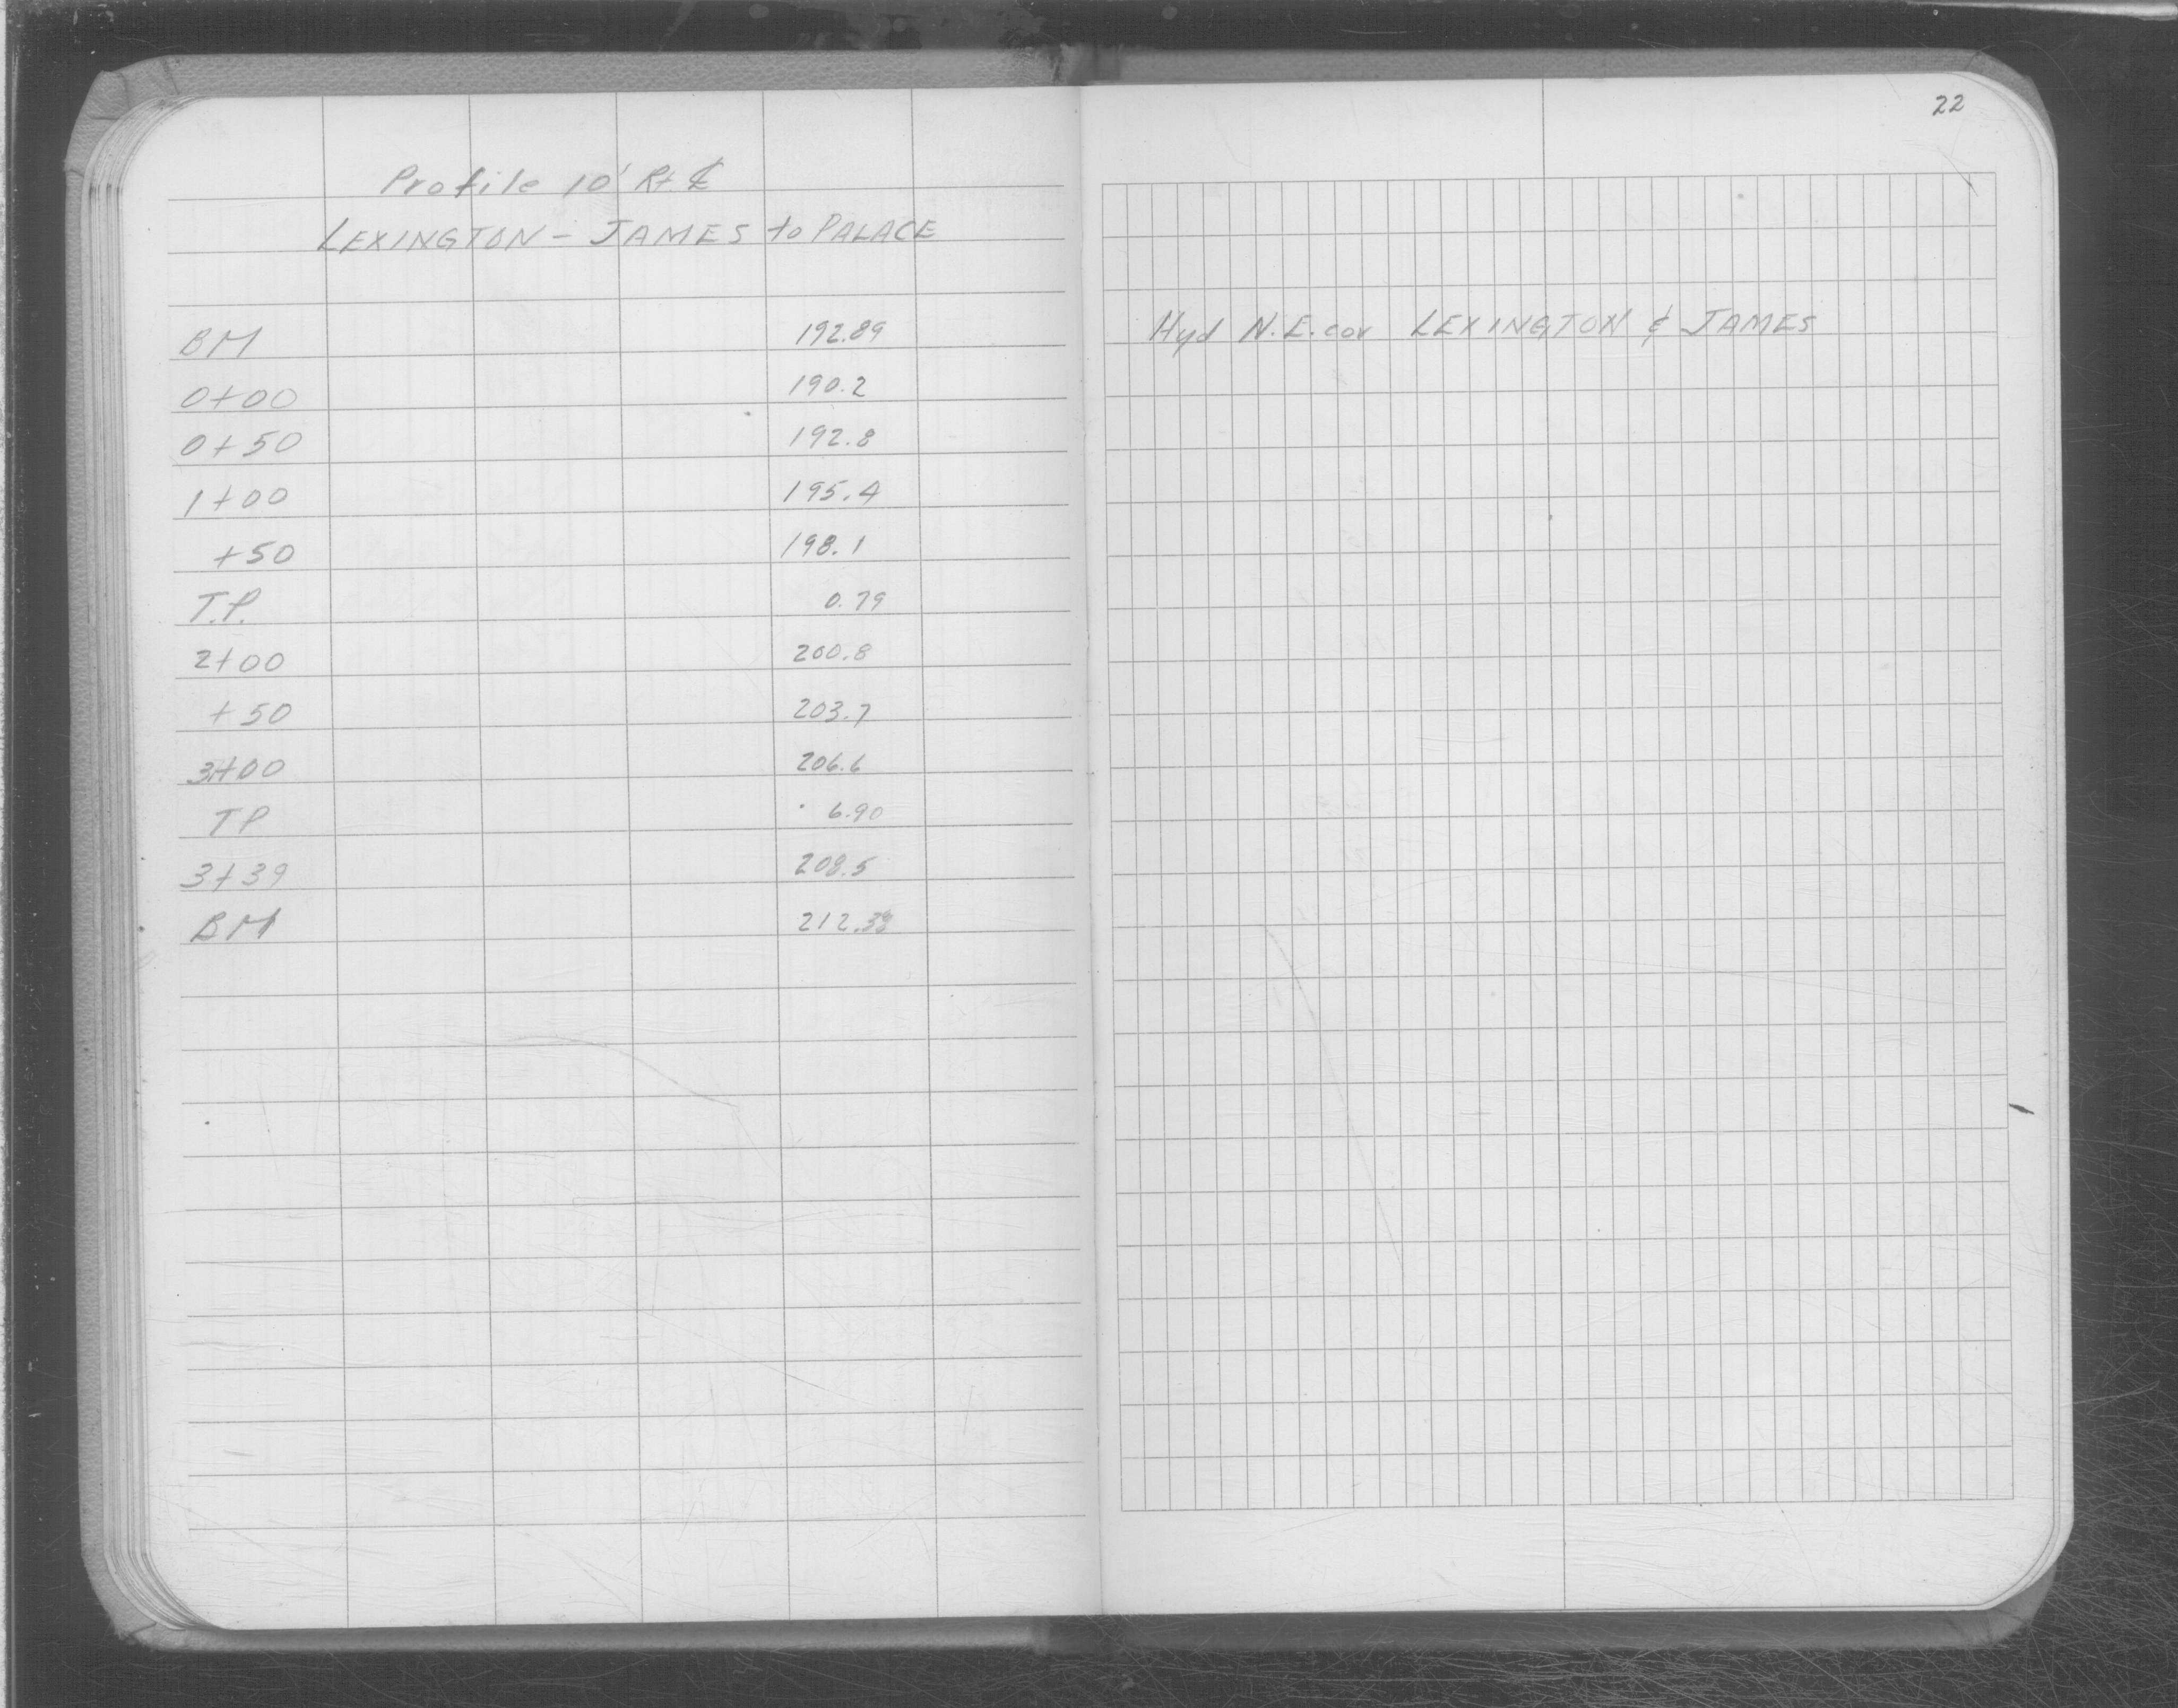 22
Profile 10' Rt ℄
LEXINGTON - JAMES to PALACE
BM 192.89 Hyd N.E. cor LEXINGTON & JAMES
0+00 190.2
0+50 192.8
1+00 195.4
+50 198.1
T.P. 0.79
2+00 200.8
+50 203.7
3+00 206.6
TP 6.90
3+39 208.5
BM 212.38